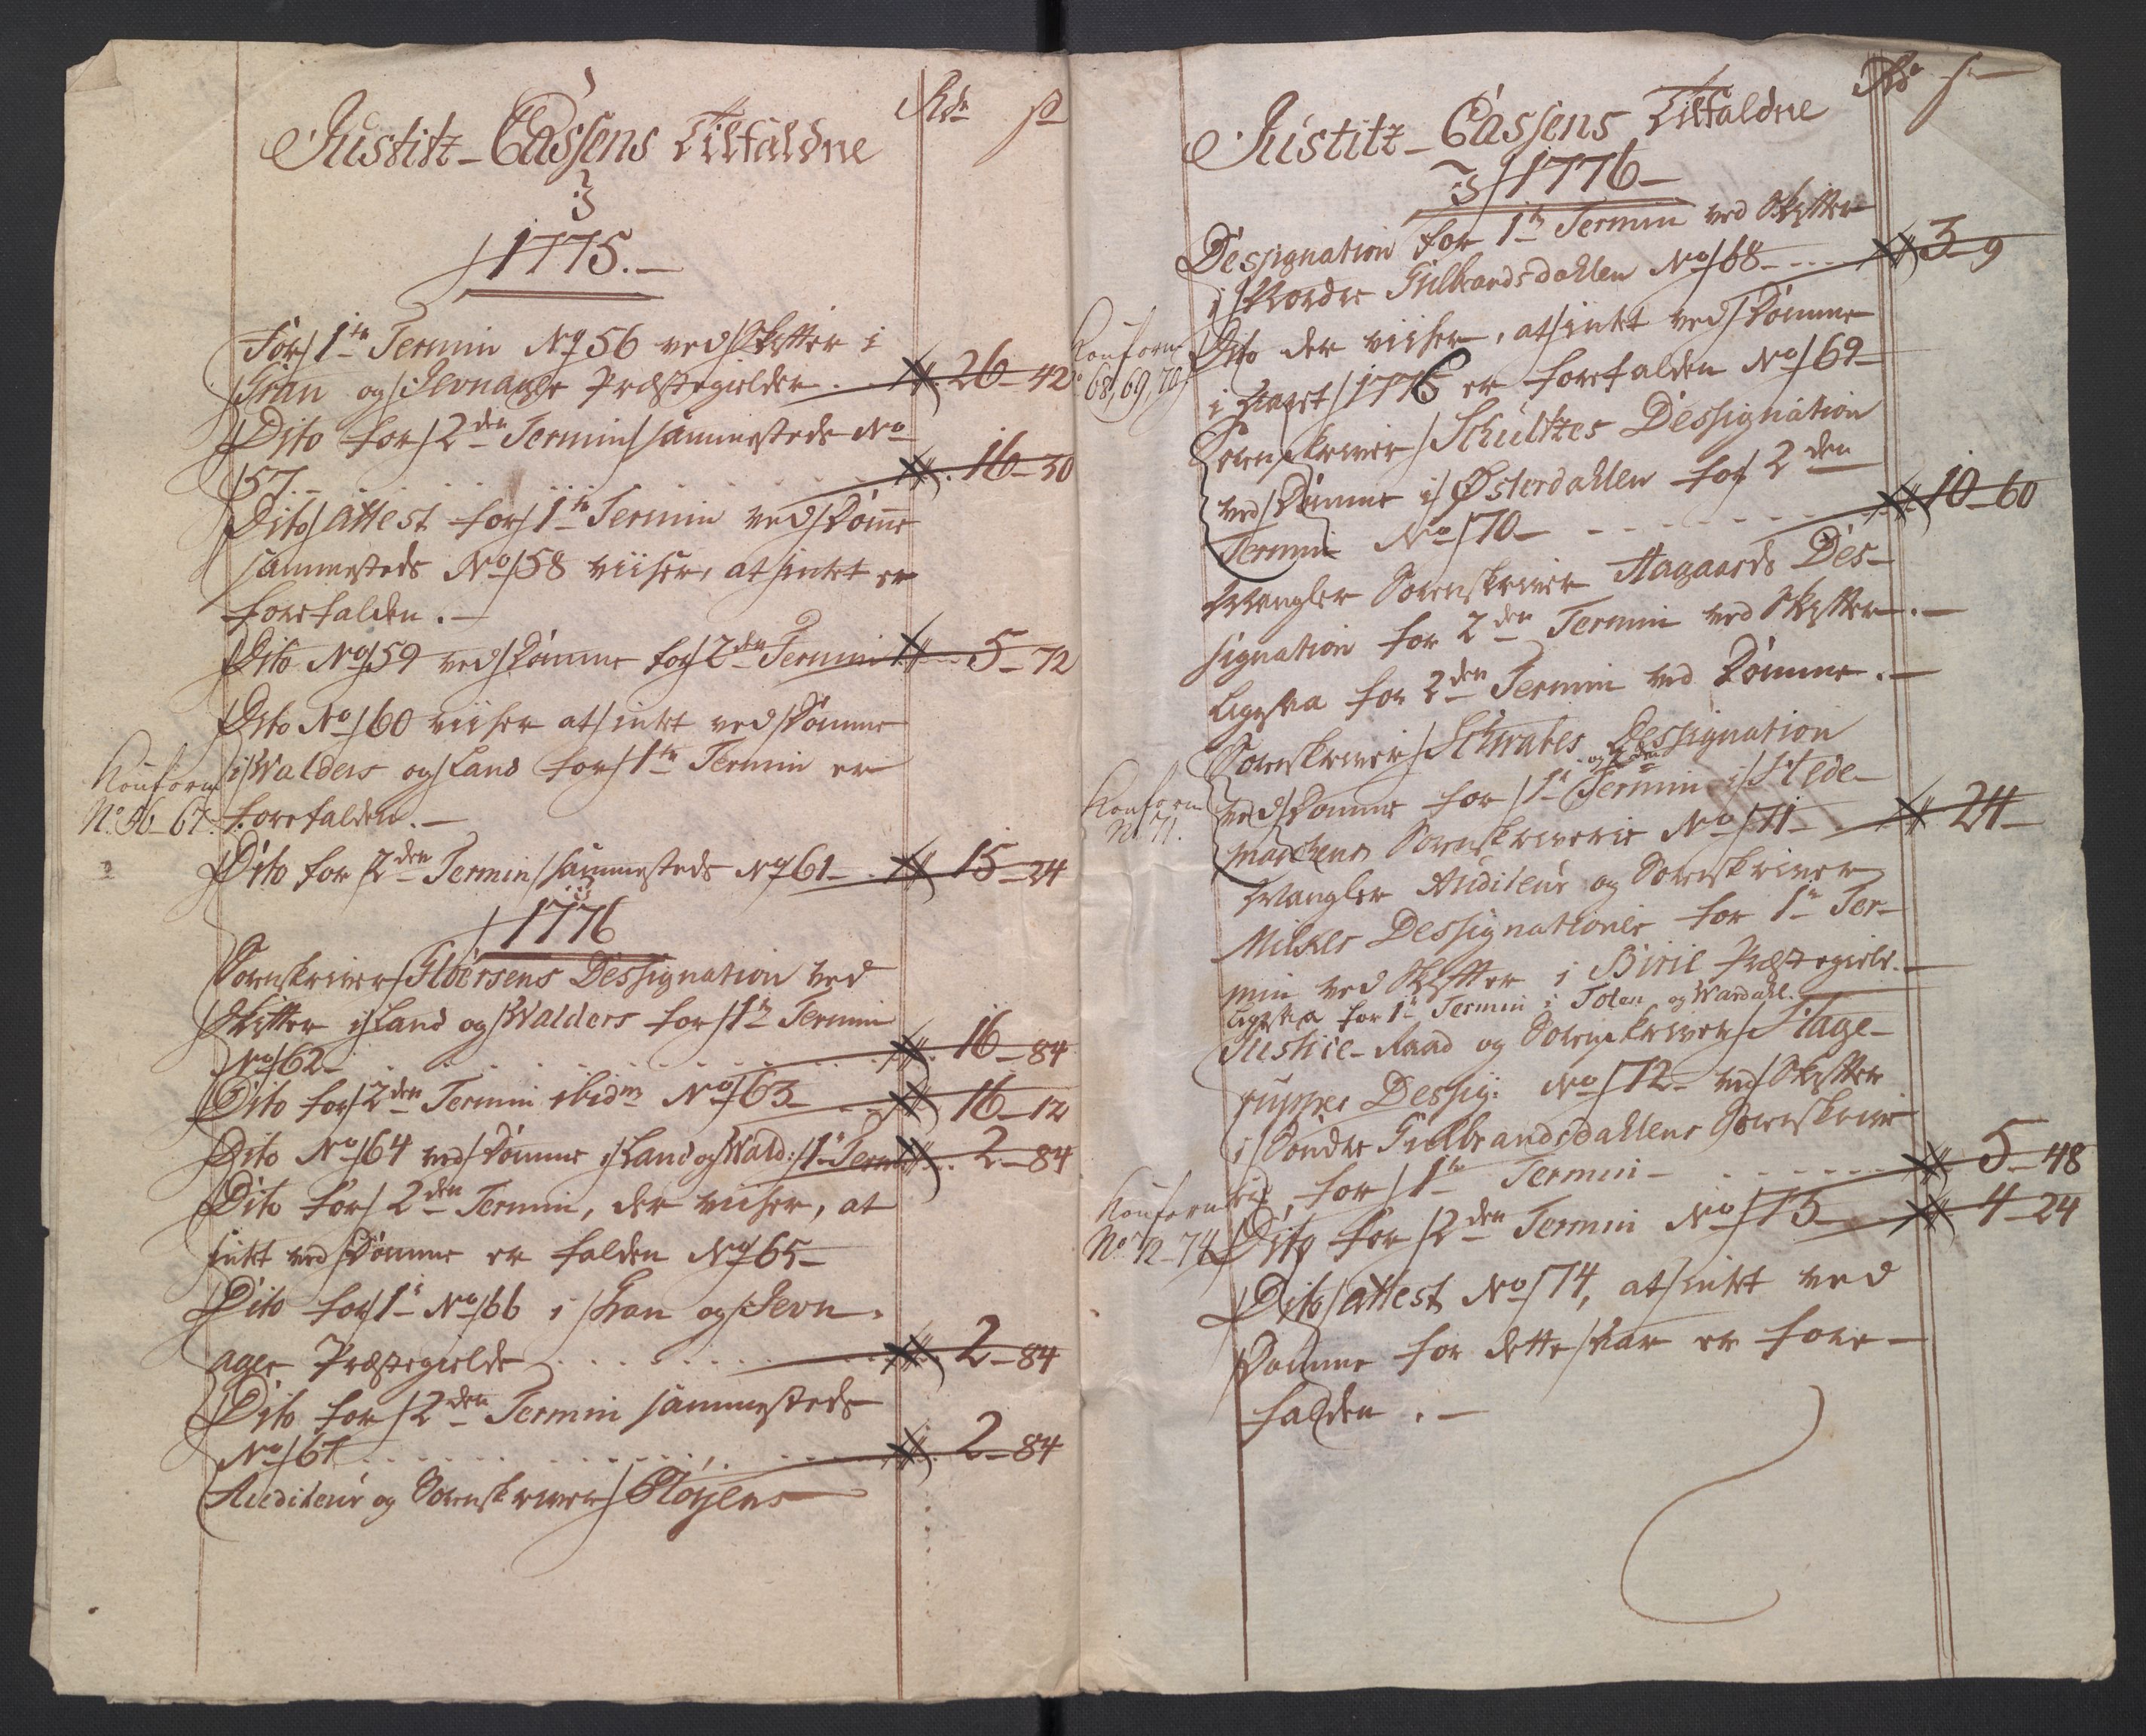 Rdr ß
Justitz-Cassens Tilfaldne
3
1775.
For 1te Termin No 56 ved Skifter i
Gran og Jevnager Præstegielder . . 26-42
Dito for 2den Termin sammesteds No
57 . . . 16-30
Dito Attest for 1te Termin ved Domme
sammesteds No 58 viiser, at intet er
forefalden.
Dito No 59 ved Domme for 2den Termin 5-72
Dito No 60 viiser at intet ved Domme
i Walders og Land for 1te Termin er
forefalden.
Konform
No 56-67.
Dito for 2den Termin sammesteds No 61 15-24
1776
Sorenskriver Ibsens Dessignation ved
Skifter i Land og Walders for 1te Termin
No 62 . . . 16-84
Dito for 2den Termin ibidm No 63 16-12
Dito No 64 ved Domme i Land og Wald: 1te Termin 2-84
Dito for 2den Termin, der viiser, at
intet ved Domme er falden No 65
Dito for 1te No 66 i Gran og Jevn-
ager Præstegield . . . 2-84
Dito for 2den Termin sammesteds
No 67 . . . 2-84
Auditeur og Sorenskriver Pløyens
Rdr ß
Justitz-Cassens Tilfaldne
3 1776
Dessignation for 1te Termin ved Skifter
i Nordre Gulbrandsdahlen No 68 . . . 3-9
Konform
No 68, 69, 70.
Dito der viiser, at intet ved Domme
i Aaret 1776 er forefalden No 69
Sorenskriver Schultzes Dessignation
ved Domme i Østerdahlen for 2den
Termin No 70 . . . 10-60
Mangler Sorenskriver Aagaards Des-
signation for 2den Termin ved Skifter.
Ligesaa for 2den Termin ved Domme.
Sorenskriver Schwabes Dessignation
ved Domme for 1te og 2den Termin i Hede-
Konform
No 71.
markens Sorenskriverie No 71 24
Mangler Auditeur og Sorenskriver
Dessignationer for 1te Ter-
min ved Skifter i Birie Præstegield.
Ligesaa for 1te Termin i Toten og Wardahl.
Justice-Raad og Sorenskriver Hage-
rupper Dessig: No 72 ved Skifter
i Søndre Gulbrandsdahlens Sorenskrive-
rie, for 1te Termin . . . 5-48
Konform
No 72-74
Dito for 2den Termin No 73 4-24
Dito Attest No 74, at intet ved
Domme for dette Aar er fore-
falden.